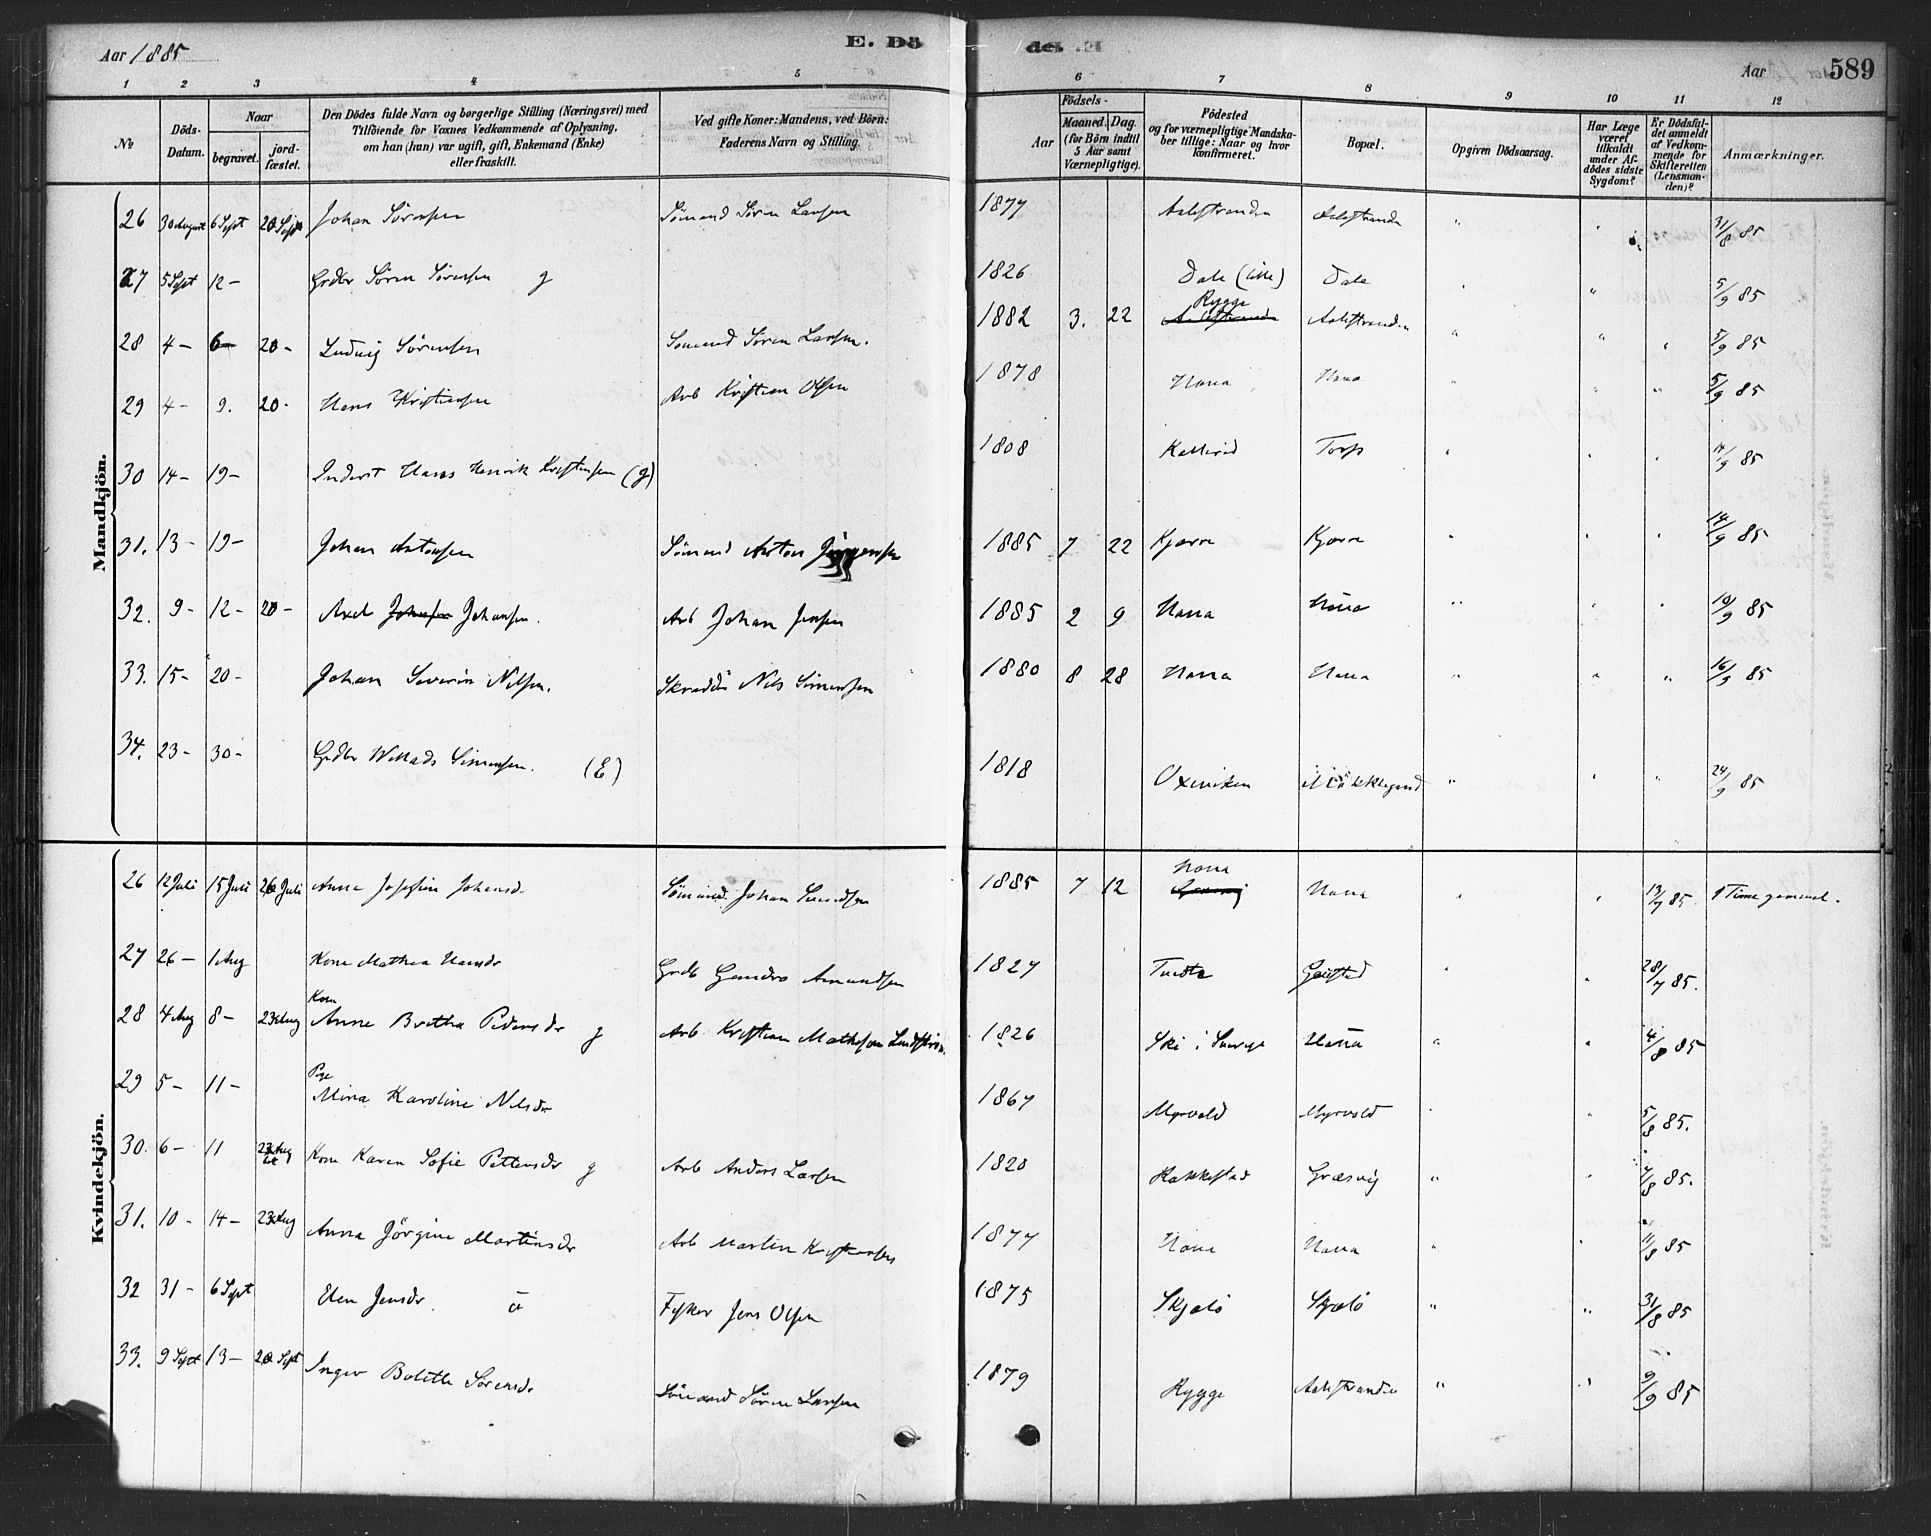 Aar 1885
E. Dö
del. E
Aar
589
1 2 3 4 5 6 7 8 9 10 11 12
No
Döds-Datum.
Naar
begravet.
jord-fæstet.
Den Dödes fulde Navn og borgerlige Stilling (Næringsvei) med
Tilföiende for Voxnes Vedkommende af Oplysning,
om han (hun) var ugift, gift, Enkemand (Enke)
eller fraskilt.
Ved gifte Koner: Mandens, ved Börn:
Faderens Navn og Stilling.
Födsels-
Aar
Maaned. Dag.
(for Börn indtil
5 Aar samt
Værnepligtige).
Födested
og for værnepligtige Mandska-
ber tillige: Naar og hvor
konfirmeret.
Bopæl.
Opgiven Dödsaarsag.
Har Læge
været
tilkaldt
under Af-
dödes sidste
Sygdom?
Er Dödsfal-
det anmeldt
af Vedkom-
mende for
Skifteretten
(Lensman-
den)?
Anmærkninger.
Mandkjön.
26 30 August 6 Sept 20 Sept Johan Sørensen Sömand Sören Larsen 1877 Aalestranden Aalestranden " " " 31/8 85
27 5 Sept 12 – Grdbr Sören Sörensen g 1826 Dale Dale " " 5/9 85
28 4 – 6 20 – Ludvig Sørensen Sömand Sören Larsen. 1882 3. 22 Rygge Aalestranden " " " 5/9 85
29 4 – 9. 20 – Hans Kristiansen Arb Kristian Olsen 1878 Hona Hona " " " 5/9 85
30 14 – 19 – Inderst Hans Henrik Kristensen (g) 1808 Torp " " " 14/9 85
31. 13 – 19 – Johan Antonsen Sömand Anton Jörgensen 1885 7 22 Kjærn Kjærn " " " 14/9 85
32. 9 – 12 – 20 – Axel Johansen Johansen. Arb Johan Jensen 1885 2 9 Hona Hona " " " 10/9 85
33. 15 – 20 – Johan Severin Nilsen. Skrædder Nils Simensen 1880 8 28 Hona Hona " " " 16/9 85
34. 23 – 30 – Grdbr Willads Simensen. (E) 1818 Oxeviken " " " 24/9 85
Kvindekjön.
26 12 Juli 15 Juli 26 Juli Anna Josefine Johansd. Sömand Johan 1885 7 12 Hona Hona " " 13/7 85. 1 Time gammel.
27 26 – 1 Aug Kone Mathea Hansdr Grdb Amundsen 1827 Tveite " " 28/7 85.
28 4 Aug 8 – 23 Aug Kone Anne Brithe Pedersdr g Arb. Kristian Mathisen Lindström 1826 Ski i Sverge Hona " " 4/8 85
29 5 – 11 – Pige Mina Karoline Nilsdr 1867 Myrvold Myrvold " " 5/8 85.
30. 6 – 11 23 Aug Kone Karen Sofie Pettersdr g Arb Anders Larsen 1820 Rakkestad Græsvig " " 7/8 85.
31. 10 – 14 – 23 Aug Anna Jörgine Martinsdr Arb Martin Kristiansen 1877 Hona Hona " " 11/8 85
32 31 – 6 Sept Elen Jensdr. Fisker Jens Olsen 1875 Skjælö Skjælö " " 31/8 85
33. 9 Sept 13 – 20 Sept Inger Bolette Sörensdr Sömand Sören Larsen 1879 Rygge Aalestranden " " 9/9 85